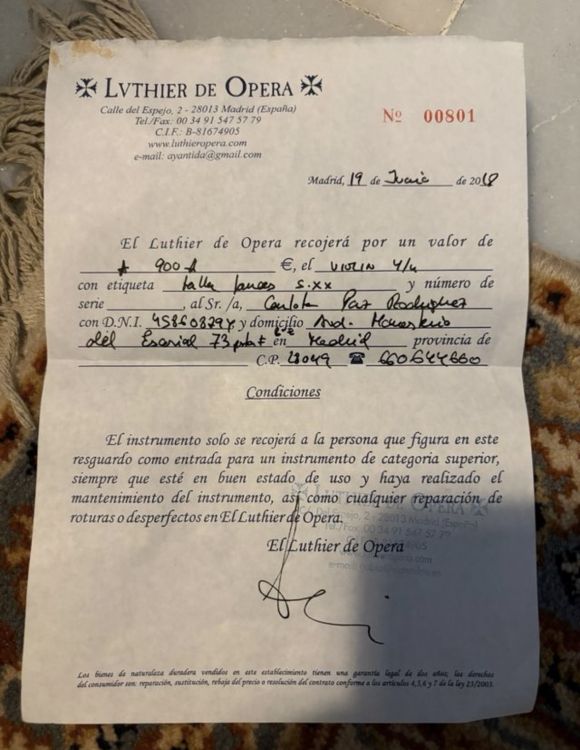 LVTHIER DE OPERA
Calle del Espejo, 2 - 28013 Madrid (España)
Tel./Fax: 00 34 91 547 57 79
C.I.F.: B-81674905
www.luthieropera.com
e-mail: ayantida@gmail.com
Nº 00801
Madrid, 19 de Junio de 2018
El Luthier de Opera recojerá por un valor de
900 €, el VIOLIN 4/4
con etiqueta talla s.XX y número de
serie , al Sr. /a, Carlota Paz Rodriguez
con D.N.I. y domicilio Avd. Monasterio
del Escorial 73 en Madrid provincia de
C.P. 28049 ☎ 660644660
Condiciones
El instrumento solo se recojerá a la persona que figura en este
resguardo como entrada para un instrumento de categoria superior,
siempre que esté en buen estado de uso y haya realizado el
mantenimiento del instrumento, así como cualquier reparación de
roturas o desperfectos en El Luthier de Opera.
El Luthier de Opera
Los bienes de naturaleza duradera vendidos en este establecimiento tienen una garantía legal de dos años; los derechos
del consumidor son: reparación, sustitución, rebaja del precio o resolución del contrato conforme a los artículos 4,5,6 y 7 de la ley 23/2003.